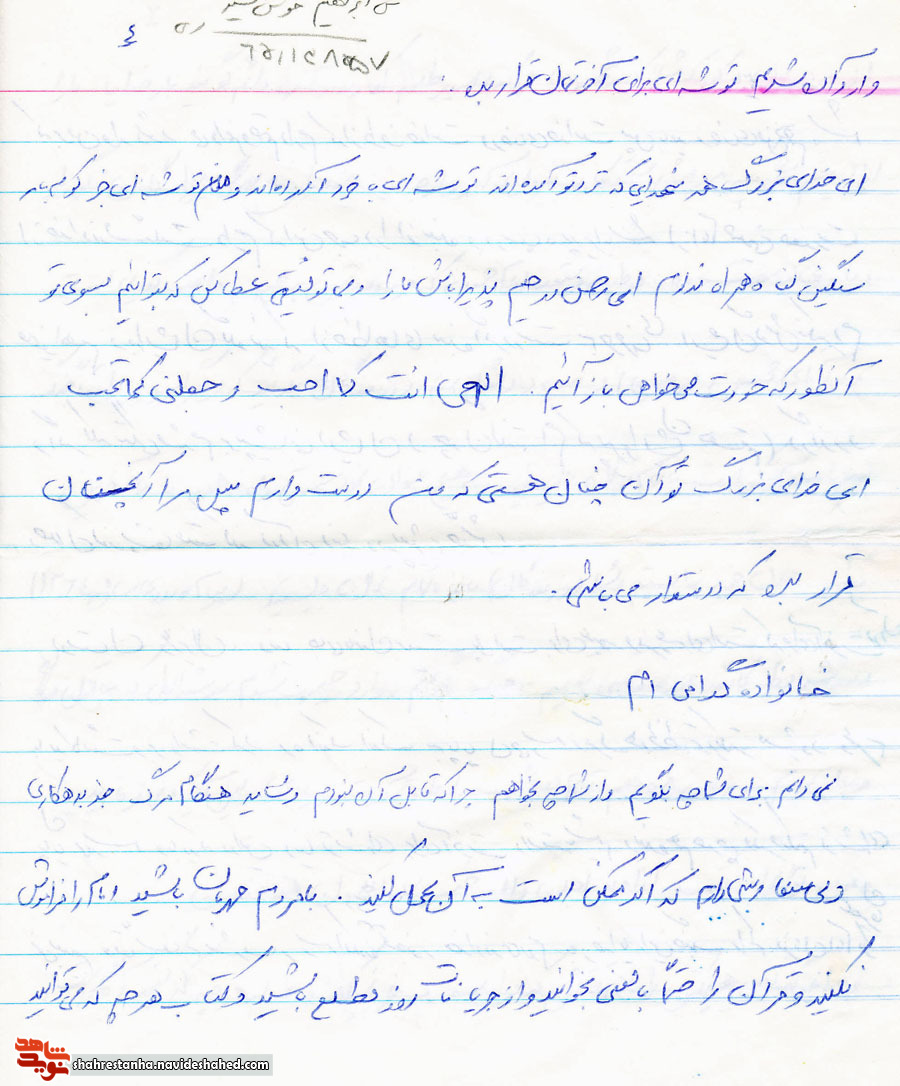 ابراهیم خوش
٤
وارد آن شدیم توشه ای برای آخرتمان قرار بده .
ای خدای بزرگ همه شهدایی که نزد تو آمده اند توشه ای با خود آورده اند و من توشه ای جز کوله بار
سنگین گناه همراه ندارم ای رحمن و رحیم پذیرا باش ما را و بما توفیقی عطا کن که بتوانیم بسوی تو
آنطور که خودت می خواهی باز آئیم . الهی انت کما احب و جعلنی کما تحب
ای خدای بزرگ تو آن چنان هستی که من دوست دارم پس مرا آنچنان
قرار بده که دوستدار می باشی .
خانواده گرامی ام
نمی دانم برای شما چه بگویم و از شما چه بخواهم چرا که قابل آن نبودم و شاید هنگام مرگ جز بدهکاری
ولی دارم که اگر ممکن است به آن عمل کنید . با مردم مهربان باشید امام را فراموش
نکنید و قرآن را حتماً با معنی بخوانید و از جریانات روز مطلع باشید و کتاب هر چه که می توانید
نوید شاهد
shahrestanha.navideshahed.com